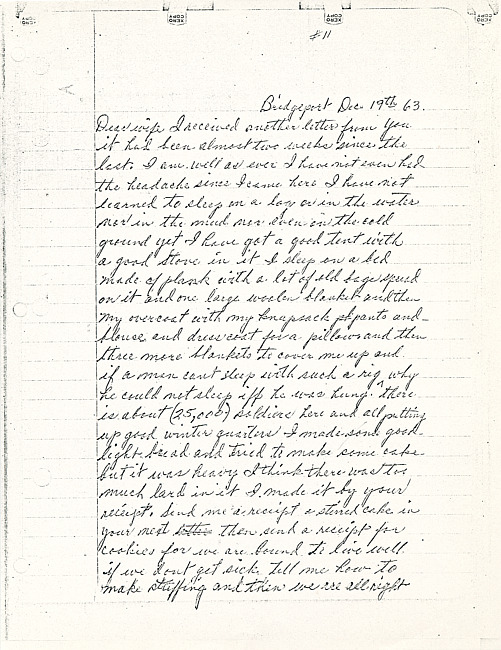 XERO COPY
XERO COPY
XERO COPY
XERO COPY
#11
Bridgeport Dec 19th 63.
Dear wife I received another letter from you
it had been almost two weeks since the
last. I am well as ever I have not even had
the headache since I came here I have not
learned to sleep on a log or in the water
nor in the mud nor even on the cold
ground yet I have got a good tent with
a good stove in it I sleep on a bed
made of plank with a lot of old bags spread
on it and one large woolen blanket and then
my overcoat with my knapsack pants and
blouse and dress coat for a pillow and then
three more blankets to cover me up and
if a man cant sleep with such a rig why
he could not sleep iff he was hung. there
is about (25,000) soldiers here and all putting
up good winter quarters I made some good
light bread and tried to make some cake
but it was heavy I think there was too
much lard in it I made it by your
receipt. Send me a receipt a stired cake in
your next then send a receipt for
cookies for we are bound to live well
if we dont get sick. tell me how to
make stuffing and then we are all right